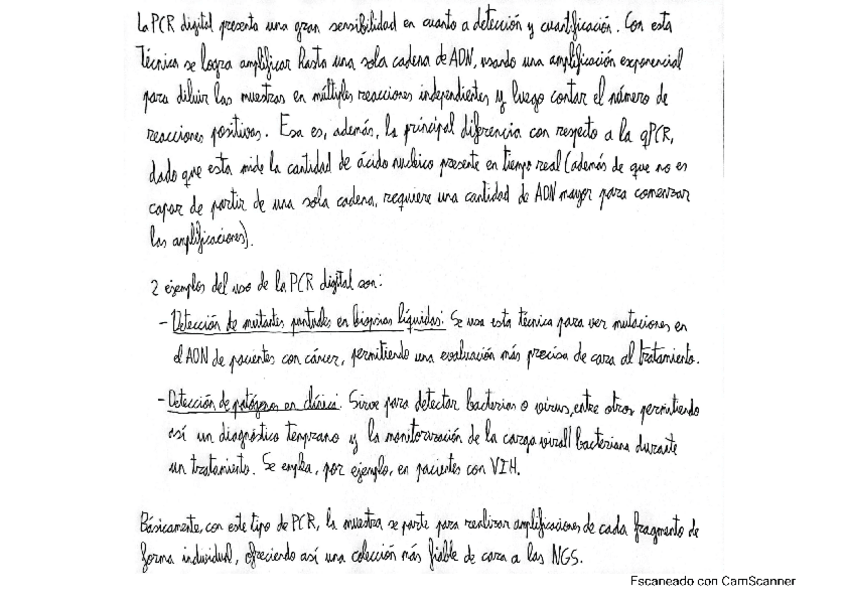 La PCR digital presenta una gran sensibilidad en cuanto a detección y cuantificación. Con esta
técnica se logra amplificar hasta una sola cadena de ADN, usando una amplificación exponencial
para diluir las muestras en múltiples reacciones independientes y luego contar el número de
reacciones positivas. Esa es, además, la principal diferencia con respecto a la qPCR,
dado que esta mide la cantidad de ácido nucleico presente en tiempo real (además de que no es
capaz de partir de una sola cadena, requiere una cantidad de ADN mayor para comenzar
las amplificaciones).
2 ejemplos del uso de la PCR digital son:
- Detección de mutantes puntuales en biopsias líquidas: Se usa esta técnica para ver mutaciones en
el ADN de pacientes con cáncer, permitiendo una evaluación más precisa de cara al tratamiento.
- Detección de patógenos en clínica: Sirve para detectar bacterias o virus, entre otros permitiendo
así un diagnóstico temprano y la monitorización de la carga viral/bacteriana durante
un tratamiento. Se emplea, por ejemplo, en pacientes con VIH.
Básicamente, con este tipo de PCR, la muestra se parte para realizar amplificaciones de cada fragmento de
forma individual, ofreciendo así una colección más fiable de cara a las NGS.
Escaneado con CamScanner